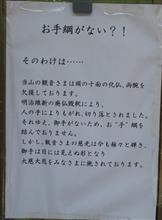 お手綱がない？！
そのわけは……
当山の観音さまは頭の十面の化仏、両腕を
欠損しております。
明治維新の廃仏毀釈により、
人の手によりもがれ、切り落とされました。
それゆえ、御手がないため、お“手”綱を
結んでおりません。
しかし、観音さまの慈光は今も燦々と輝き、
御手は目には見えぬ形となり
大慈大悲をみなさまに施されております。